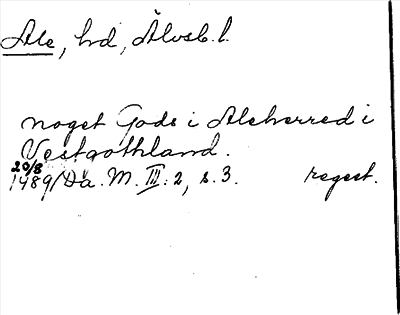 Ale, hd, Älvsb. l.
noget Gods i Aleherred i
Vestgothland.
20/8
1489/Da. M. III: 2, s. 3. regest.